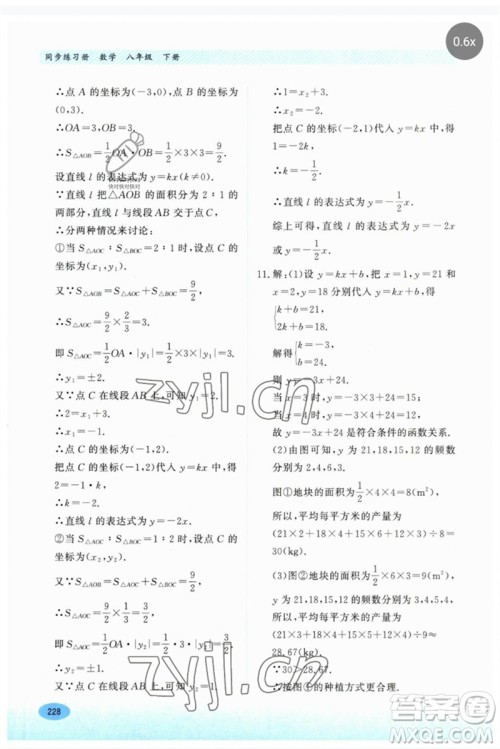 同步练习册 数学 八年级 下册
0.6x
∴点 A 的坐标为(-3,0),点 B 的坐标为
(0,3).
∴OA=3,OB=3.
∴S△AOB=1/2 OA·OB=1/2×3×3=9/2.
设直线 l 的表达式为 y=kx(k≠0).
∵直线 l 把△AOB 的面积分为 2∶1 的
两部分,直线 l 与线段 AB 交于点 C,
∴分两种情况来讨论:
①当 S△AOC∶S△BOC=2∶1 时,设点 C 的
坐标为(x₁,y₁).
又∵S△AOB=S△AOC+S△BOC=9/2,
∴S△AOC=9/2×2/3=3.
即 S△AOC=1/2 OA·|y₁|=1/2×3×|y₁|=3.
∴y₁=±2.
∵点 C 在线段 AB 上,∴y₁=2.
∴x₁=-1.
把点 C 的坐标(-1,2)代入 y=kx 中,得
2=-1·k.
∴k=-2.
∴直线 l 的表达式为 y=-2x.
②当 S△AOC∶S△BOC=1∶2 时,设点 C 的
坐标为(x₂,y₂).
又∵S△AOB=S△AOC+S△BOC=9/2,
∴S△AOC=9/2×1/3=3/2.
即 S△AOC=1/2 OA·|y₂|=1/2·3·|y₂|=3/2.
∴y₂=±1.
∵点 C 在线段 AB 上,∴y₂=1.
∴1=x₂+3.∴x₂=-2.
把点 C 的坐标(-2,1)代入 y=kx 中,得
1=-2k.
∴k=-1/2.
∴直线 l 的表达式为 y=-1/2x.
综上可得,直线 l 的表达式为 y=-2x 或
y=-1/2x.
11.解:(1)设 y=kx+b,把 x=1,y=21 和
x=2,y=18 分别代入 y=kx+b,得
{k+b=21,
2k+b=18.
解得{k=-3,
b=24.
∴y=-3x+24.
当 x=3 时,y=-3×3+24=15;
当 x=4 时,y=-3×4+24=12.
故 y=-3x+24 是符合条件的函数关系.
(2)由图可知,y 为 21,18,15,12 的频数
分别为 2,4,6,3.
图①地块的面积为1/2×4×4=8(m²)
所以,平均每平方米的产量为
(21×2+18×4+15×6+12×3)÷8=
30(kg).
(3)图②地块的面积为1/2×6×3=9(m²),
y 为 21,18,15,12 的频数分别为 3,4,
5,3.
所以,平均每平方米的产量为
(21×3+18×4+15×5+12×3)÷9≈
28.67(kg).
∵30>28.67,
∴按图①的种植方式更合理.
快对快对快对
zyjl.cn
zyjl.cn
228
作业精灵
MXEQE.COM